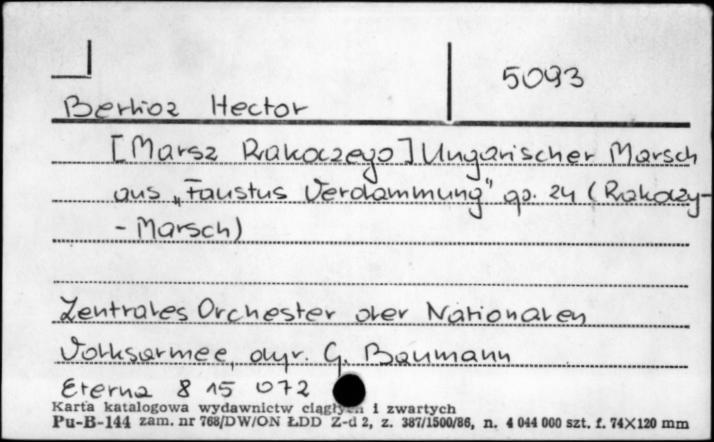 5093
Berlioz Hector
[Marsz Rakoczego] Ungarischer Marsch
aus „Faustus Verdammung" op. 24 (Rakoczy-
- Marsch)
Zentrales Orchester der Nationalen
Volksarmee, dyr. G. Baumann
Eterna 8 15 072
Karta katalogowa wydawnictw ciągłych i zwartych
Pu-B-144 zam. nr 768/DW/ON ŁDD Z-d 2, z. 387/1500/86, n. 4 044 000 szt. f. 74X120 mm